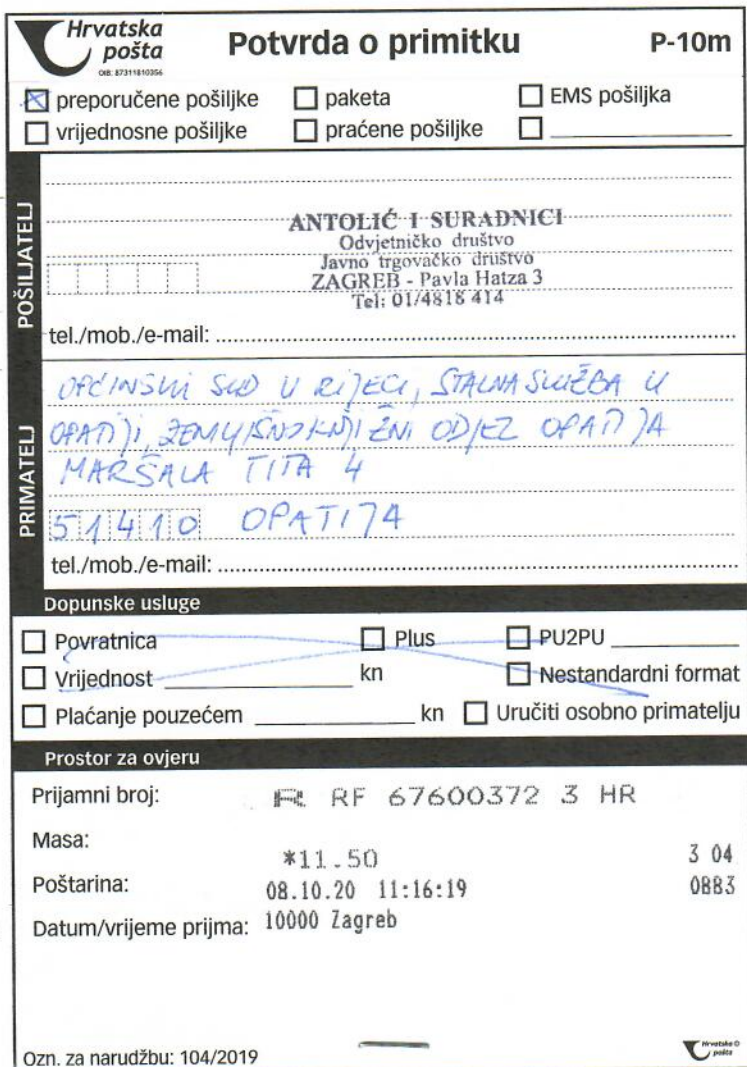 Hrvatska
pošta
OIB: 87311810356
Potvrda o primitku
P-10m
preporučene pošiljke
paketa
EMS pošiljka
vrijednosne pošiljke
praćene pošiljke
POŠILJATELJ
ANTOLIĆ I SURADNICI
Odvjetničko društvo
Javno trgovačko društvo
ZAGREB - Pavla Hatza 3
Tel: 01/4818 414
tel./mob./e-mail:
PRIMATELJ
OPĆINSKI SUD U RIJECI, STALNA SLUŽBA U
OPATIJI, ZEMLJIŠNOKNJIŽNI ODJEL OPATIJA
MARŠALA TITA 4
51410 OPATIJA
tel./mob./e-mail:
Dopunske usluge
Povratnica
Plus
PU2PU
Vrijednost kn
Nestandardni format
Plaćanje pouzećem kn
Uručiti osobno primatelju
Prostor za ovjeru
Prijamni broj: R RF 67600372 3 HR
Masa:
*11.50 3 04
Poštarina:
08.10.20 11:16:19 0883
Datum/vrijeme prijma: 10000 Zagreb
Ozn. za narudžbu: 104/2019
Hrvatska
pošta